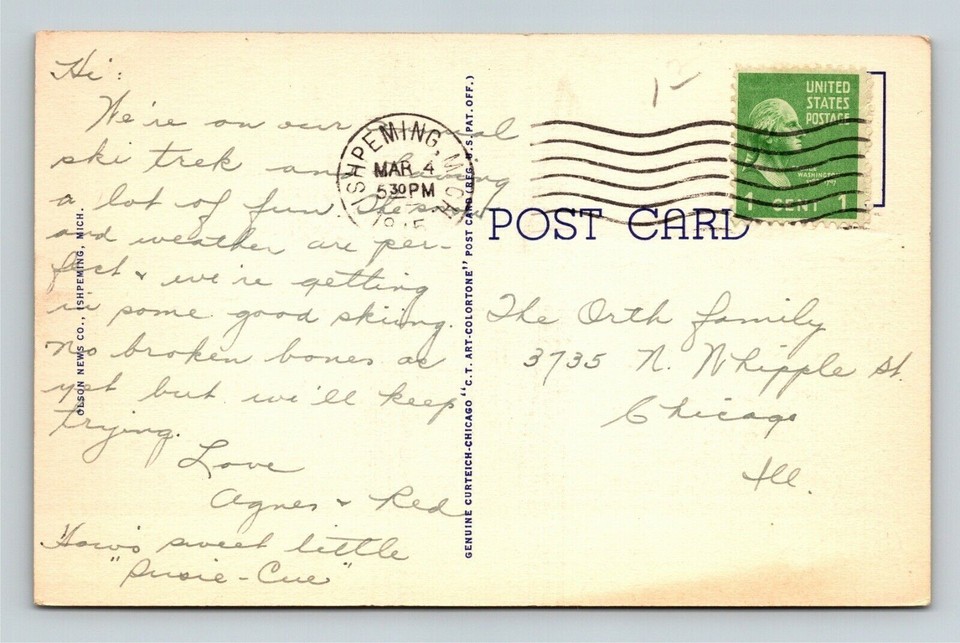 Hi:
We're on our annual
ski trek and having
a lot of fun. The snow
and weather are per-
fect & we're getting
in some good skiing.
No broken bones as
yet but we'll keep
trying.
Love
Agnes & Red
How's sweet little
"Susie-Cue"
OLSON NEWS CO., ISHPEMING, MICH.
GENUINE CURTEICH-CHICAGO "C.T. ART-COLORTONE" POST CARD (REG. U.S. PAT. OFF.)
ISHPEMING, MICH.
MAR 4
5 30 PM
POST CARD
UNITED
STATES
POSTAGE
WASHINGTON
1 CENT 1
The Orth family
3735 N. Whipple St.
Chicago
Ill.